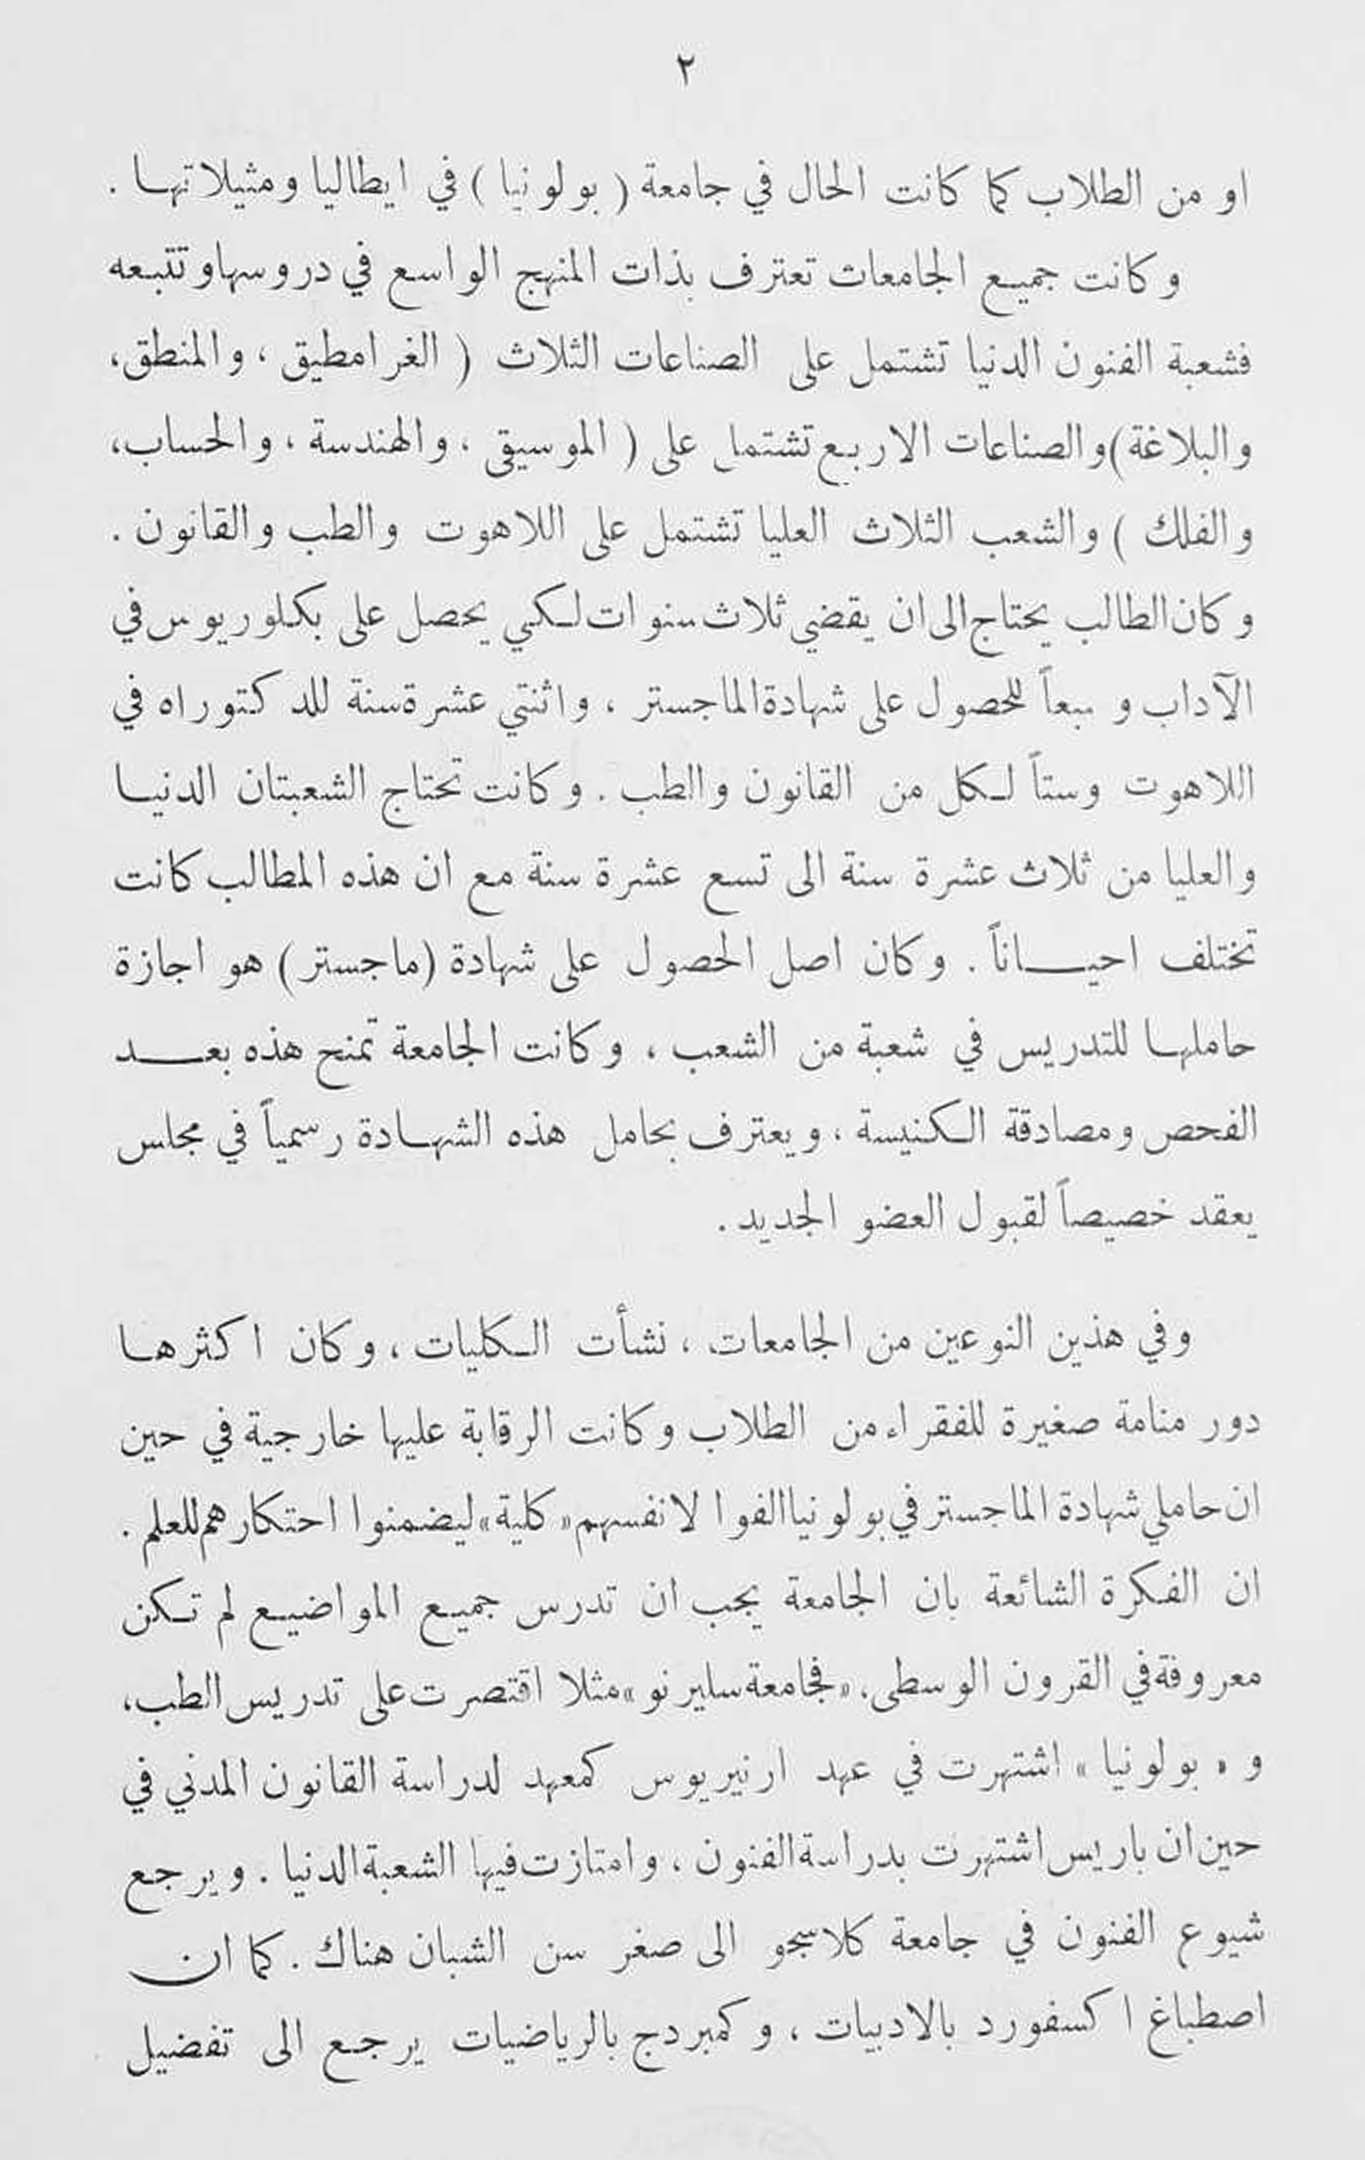 ٢
او من الطلاب كما كانت الحال في جامعة ( بولونيا ) في ايطاليا ومثيلاتها .
وكانت جميع الجامعات تعترف بذات المنهج الواسع في دروسها وتتبعه
فشعبة الفنون الدنيا تشتمل على الصناعات الثلاث ( الغرامطيق ، والمنطق،
والبلاغة) والصناعات الاربع تشتمل على ( الموسيقى ، والهندسة ، والحساب،
والفلك ) والشعب الثلاث العليا تشتمل على اللاهوت والطب والقانون .
وكان الطالب يحتاج الى ان يقضي ثلاث سنوات لكي يحصل على بكلوريوس في
الآداب و سبعاً للحصول على شهادة الماجستر ، واثنتي عشرة سنة للدكتوراه في
اللاهوت وستاً لكل من القانون والطب . وكانت تحتاج الشعبتان الدنيا
والعليا من ثلاث عشرة سنة الى تسع عشرة سنة مع ان هذه المطالب كانت
تختلف احياناً . وكان اصل الحصول على شهادة (ماجستر) هو اجازة
حاملها للتدريس في شعبة من الشعب ، وكانت الجامعة تمنح هذه بعد
الفحص ومصادقة الكنيسة ، ويعترف بحامل هذه الشهادة رسمياً في مجلس
يعقد خصيصاً لقبول العضو الجديد .
وفي هذين النوعين من الجامعات ، نشأت الكليات ، وكان اكثرها
دور منامة صغيرة للفقراء من الطلاب وكانت الرقابة عليها خارجية في حين
ان حاملي شهادة الماجستر في بولونيا الفوا لانفسهم «كلية» ليضمنوا احتكارهم للعلم .
ان الفكرة الشائعة بان الجامعة يجب ان تدرس جميع المواضيع لم تكن
معروفة في القرون الوسطى. «فجامعة سليرنو» مثلا اقتصرت على تدريس الطب،
و « بولونيا » اشتهرت في عهد ارنيريوس كمعهد لدراسة القانون المدني في
حين ان باريس اشتهرت بدراسة الفنون ، وامتازت فيها الشعبة الدنيا . ويرجع
شيوع الفنون في جامعة كلاسجو الى صغر سن الشبان هناك . كما ان
اصطباغ اكسفورد بالادبيات ، وكمبردج بالرياضيات يرجع الى تفضيل